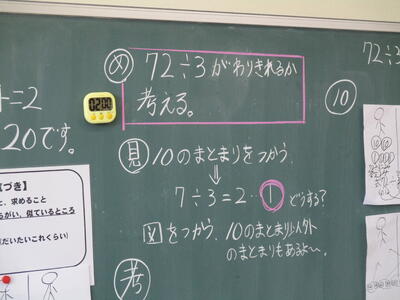 め 72÷3がわりきれるか
考える。
見 10のまとまりをつかう
⇓
7÷3=2…1 どうする?
図をつかう。10のまとまり以外
のまとまりもあるよ〜。
考
=2
20です。
02:00
づき】
と、求めること
ちがい、似ているところ
だいたいこれくらい)
72÷3
10